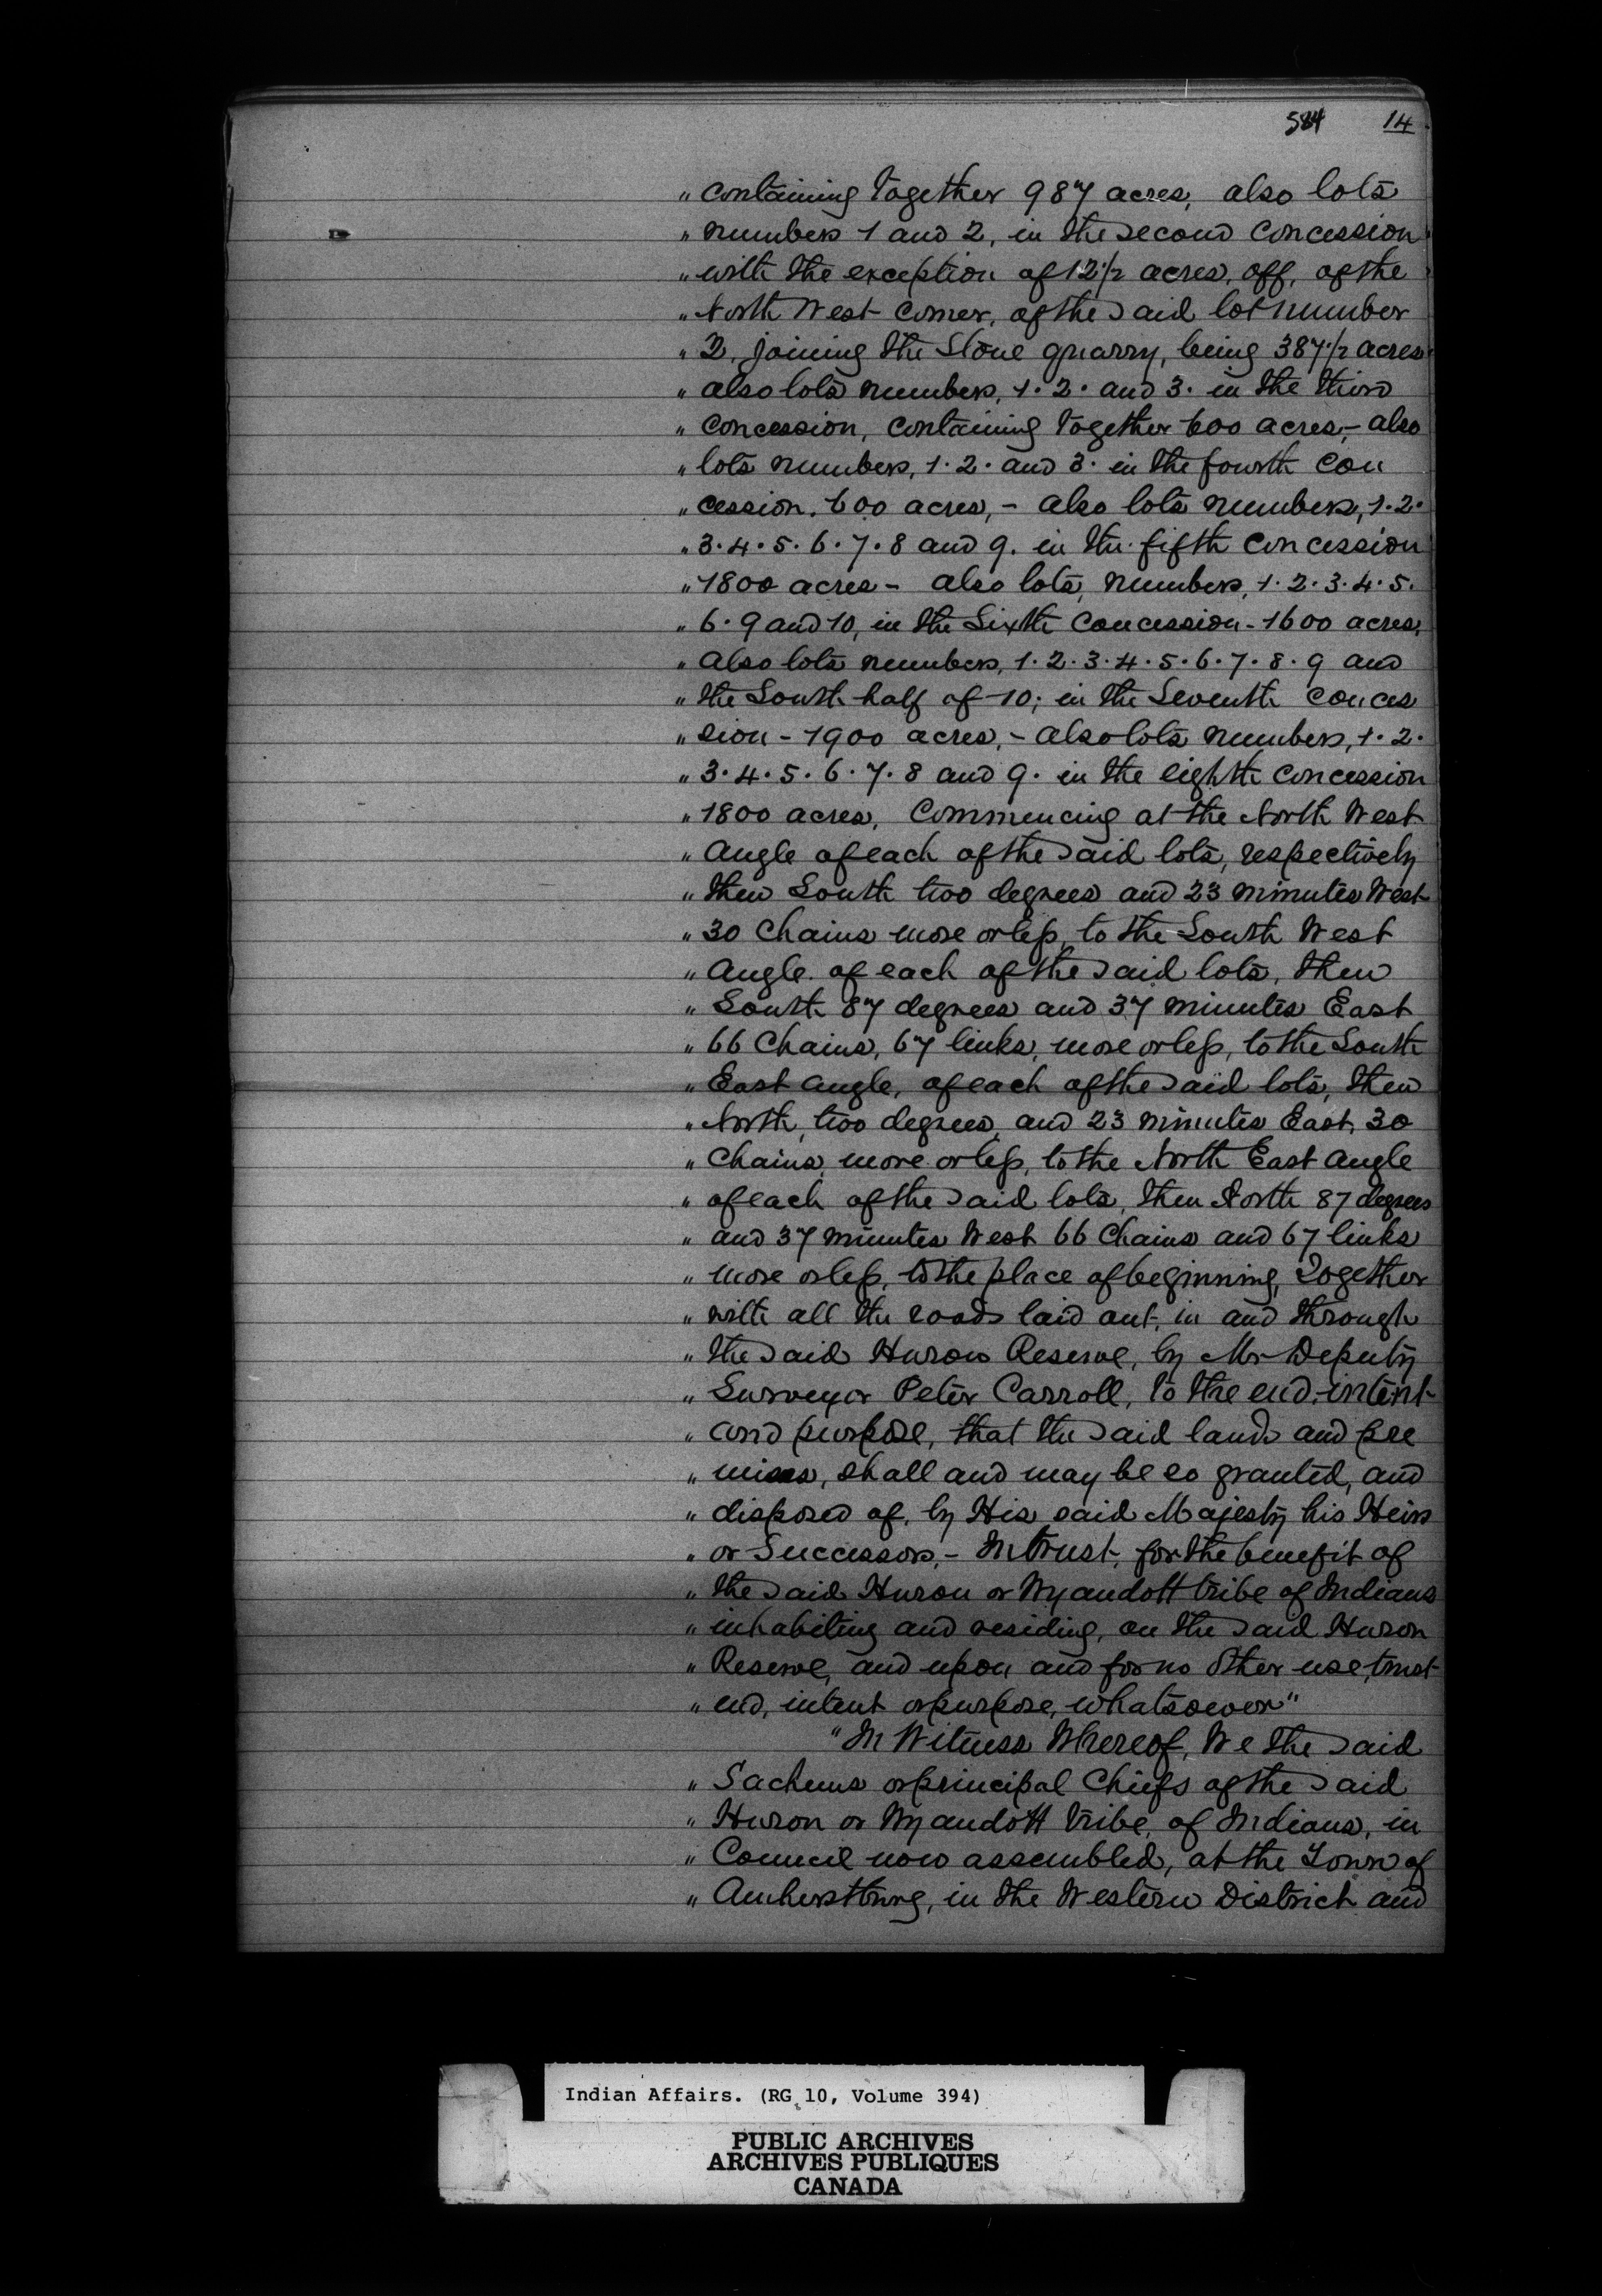 584 14
" containing together 987 acres, also lots
" numbers 1 and 2, in the second concession
" with the exception of 12 1/2 acres, off, of the
" North West corner, of the said lot number
" 2, joining the Stone quarry, being 387 1/2 acres
" also lots numbers, 1. 2. and 3. in the third
" concession, containing together 600 acres,- also
" lots numbers, 1. 2. and 3. in the fourth con
" cession. 600 acres,- also lots numbers, 1. 2.
" 3. 4. 5. 6. 7. 8 and 9. in the fifth concession
" 1800 acres - also lots, numbers, 1. 2. 3. 4. 5.
" 6. 9 and 10, in the Sixth Concession - 1600 acres,
" also lots numbers, 1. 2. 3. 4. 5. 6. 7. 8. 9 and
" the South half of 10; in the Seventh conces
" sion - 1900 acres,- also lots numbers, 1. 2.
" 3. 4. 5. 6. 7. 8 and 9. in the eighth concession
" 1800 acres, Commencing at the North West
" angle of each of the said lots, respectively
" then South two degrees and 23 minutes West
" 30 Chains more or less, to the South West
" angle. of each of the said lots, then
" South 87 degrees and 37 minutes East
" 66 Chains, 67 links, more or less, to the South
" East angle, of each of the said lots, then
" North, two degrees, and 23 minutes East, 30
" Chains, more or less, to the North East angle
" of each of the said lots, then North 87 degrees
" and 37 minutes West 66 Chains and 67 links
" more or less, to the place of beginning, Together
" with all the roads laid out, in and through
" the said Huron Reserve, by Mr Deputy
" Surveyor Peter Carroll, to the end, intent
" and purpose, that the said lands and pre
" mises, shall and may be so granted, and
" disposed of, by His said Majesty his Heirs
" or Successors,- In trust, for the benefit of
" the said Huron or Wyandott tribe of Indians
" inhabiting and residing, on the said Huron
" Reserve, and upon and for no other use, trust
" end, intent or purpose, whatsoever"
" In Witness Whereof, We the said
" Sachems or principal Chiefs of the said
" Huron or Wyandott tribe, of Indians, in
" Council now assembled, at the Town of
" Amherstburg, in the Western District and
Indian Affairs. (RG 10, Volume 394)
PUBLIC ARCHIVES
ARCHIVES PUBLIQUES
CANADA